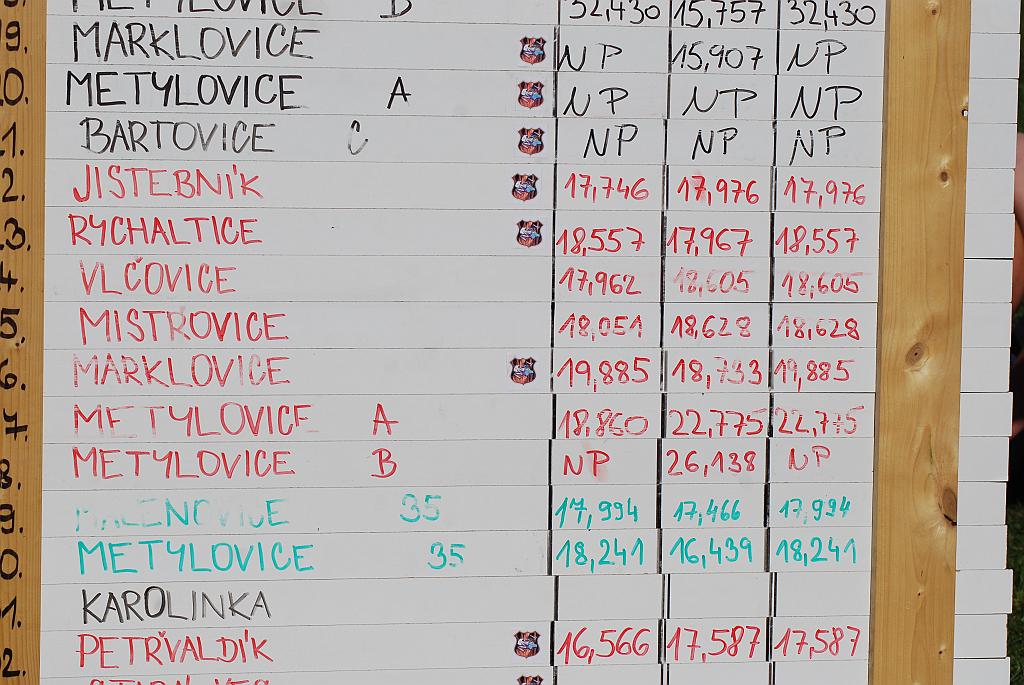 METYLOVICE B 32,430 15,757 32,430
9. MARKLOVICE NP 15,907 NP
0. METYLOVICE A NP NP NP
1. BARTOVICE C NP NP NP
2. JISTEBNÍK 17,746 17,976 17,976
3. RYCHALTICE 18,557 17,967 18,557
4. VLČOVICE 17,962 18,605 18,605
5. MISTROVICE 18,051 18,628 18,628
6. MARKLOVICE 19,885 18,733 19,885
7. METYLOVICE A 18,860 22,775 22,775
8. METYLOVICE B NP 26,138 NP
9. MALENOVICE 35 17,994 17,466 17,994
0. METYLOVICE 35 18,241 16,439 18,241
1. KAROLINKA
2. PETŘVALDÍK 16,566 17,587 17,587